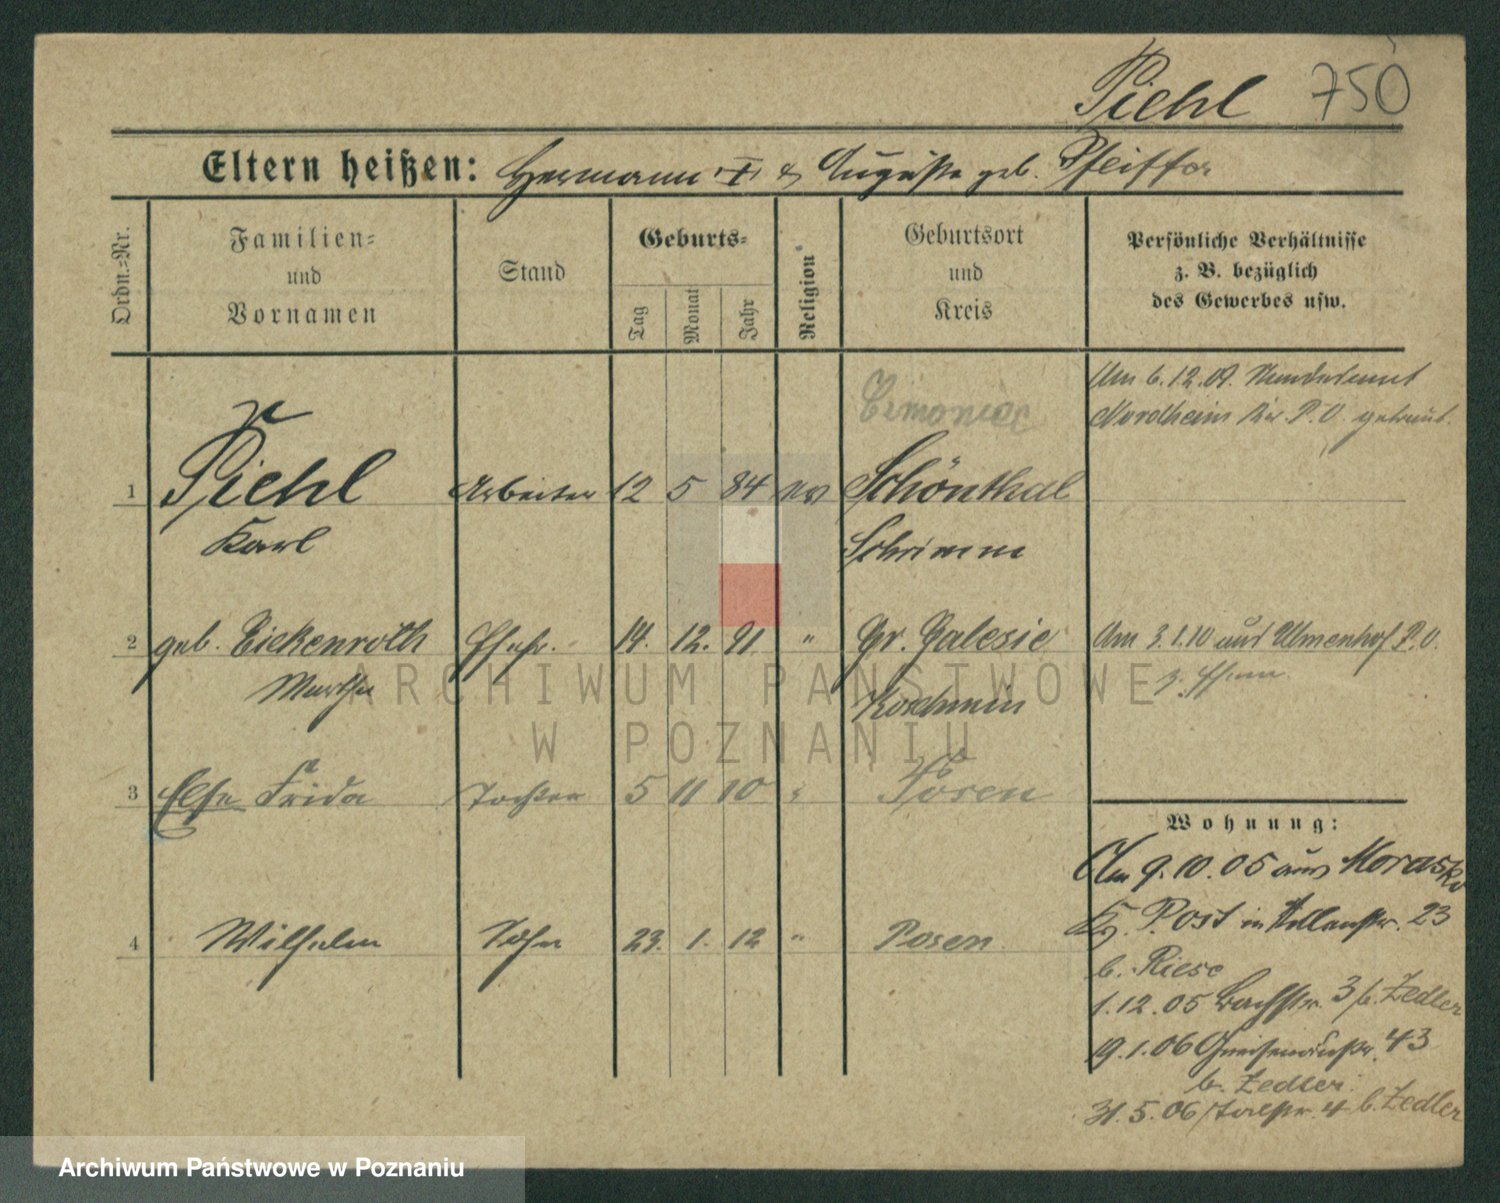 Piehl 750
Eltern heißen: Hermann I & Auguste geb. Pfeiffer
Ordn.-Nr.
Familien-
und
Vornamen
Stand
Geburts-
Tag
Monat
Jahr
Religion
Geburtsort
und
Kreis
Persönliche Verhältnisse
z. B. bezüglich
des Gewerbes usw.
Am 6.12.09.
Nordheim Kr. P. O. getraut.
1 Piehl Arbeiter 12 5 84 ev Schönthal
Karl Schrimm
2 geb. Eickenroth Ehefr. 14. 12. 91 " Gr. Galesie
Martha Koschmin
Am 3.1.10 aus Ulmenhof P. O.
3 Else Frida Tochter 5 11 10 " Posen
4 Wilhelm Sohn 23. 1. 12 " Posen
Wohnung:
Am 9.10.05 aus Morasko
Kr. P. Ost in 23
b. Riese
1.12.05 Bachstr. 3 b. Zedler
19.1.06 Gneisenaustr. 43
b. Zedler
31.5.06 Talstr. 4 b. Zedler
ARCHIWUM PAŃSTWOWE
W POZNANIU
Archiwum Państwowe w Poznaniu